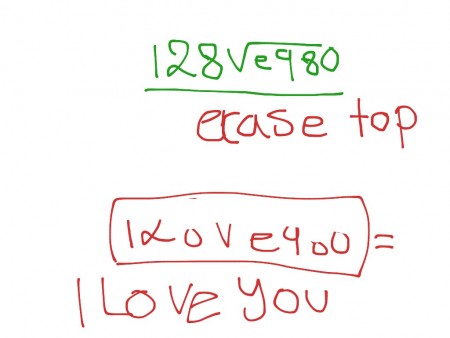 128√e980
erase top
12ove900 =
I Love you